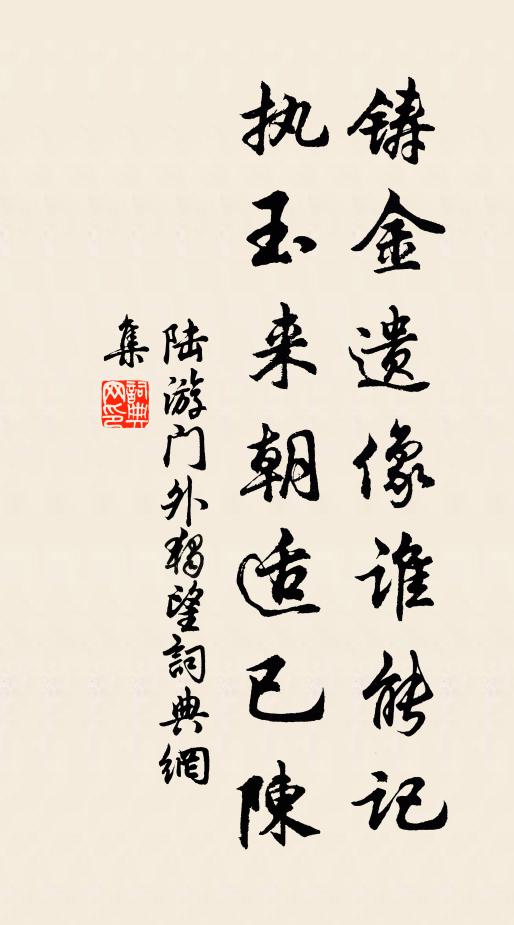 铸金遗像谁能记
执玉来朝适已陳
陆游门外独望詞典網
集
詞典网印